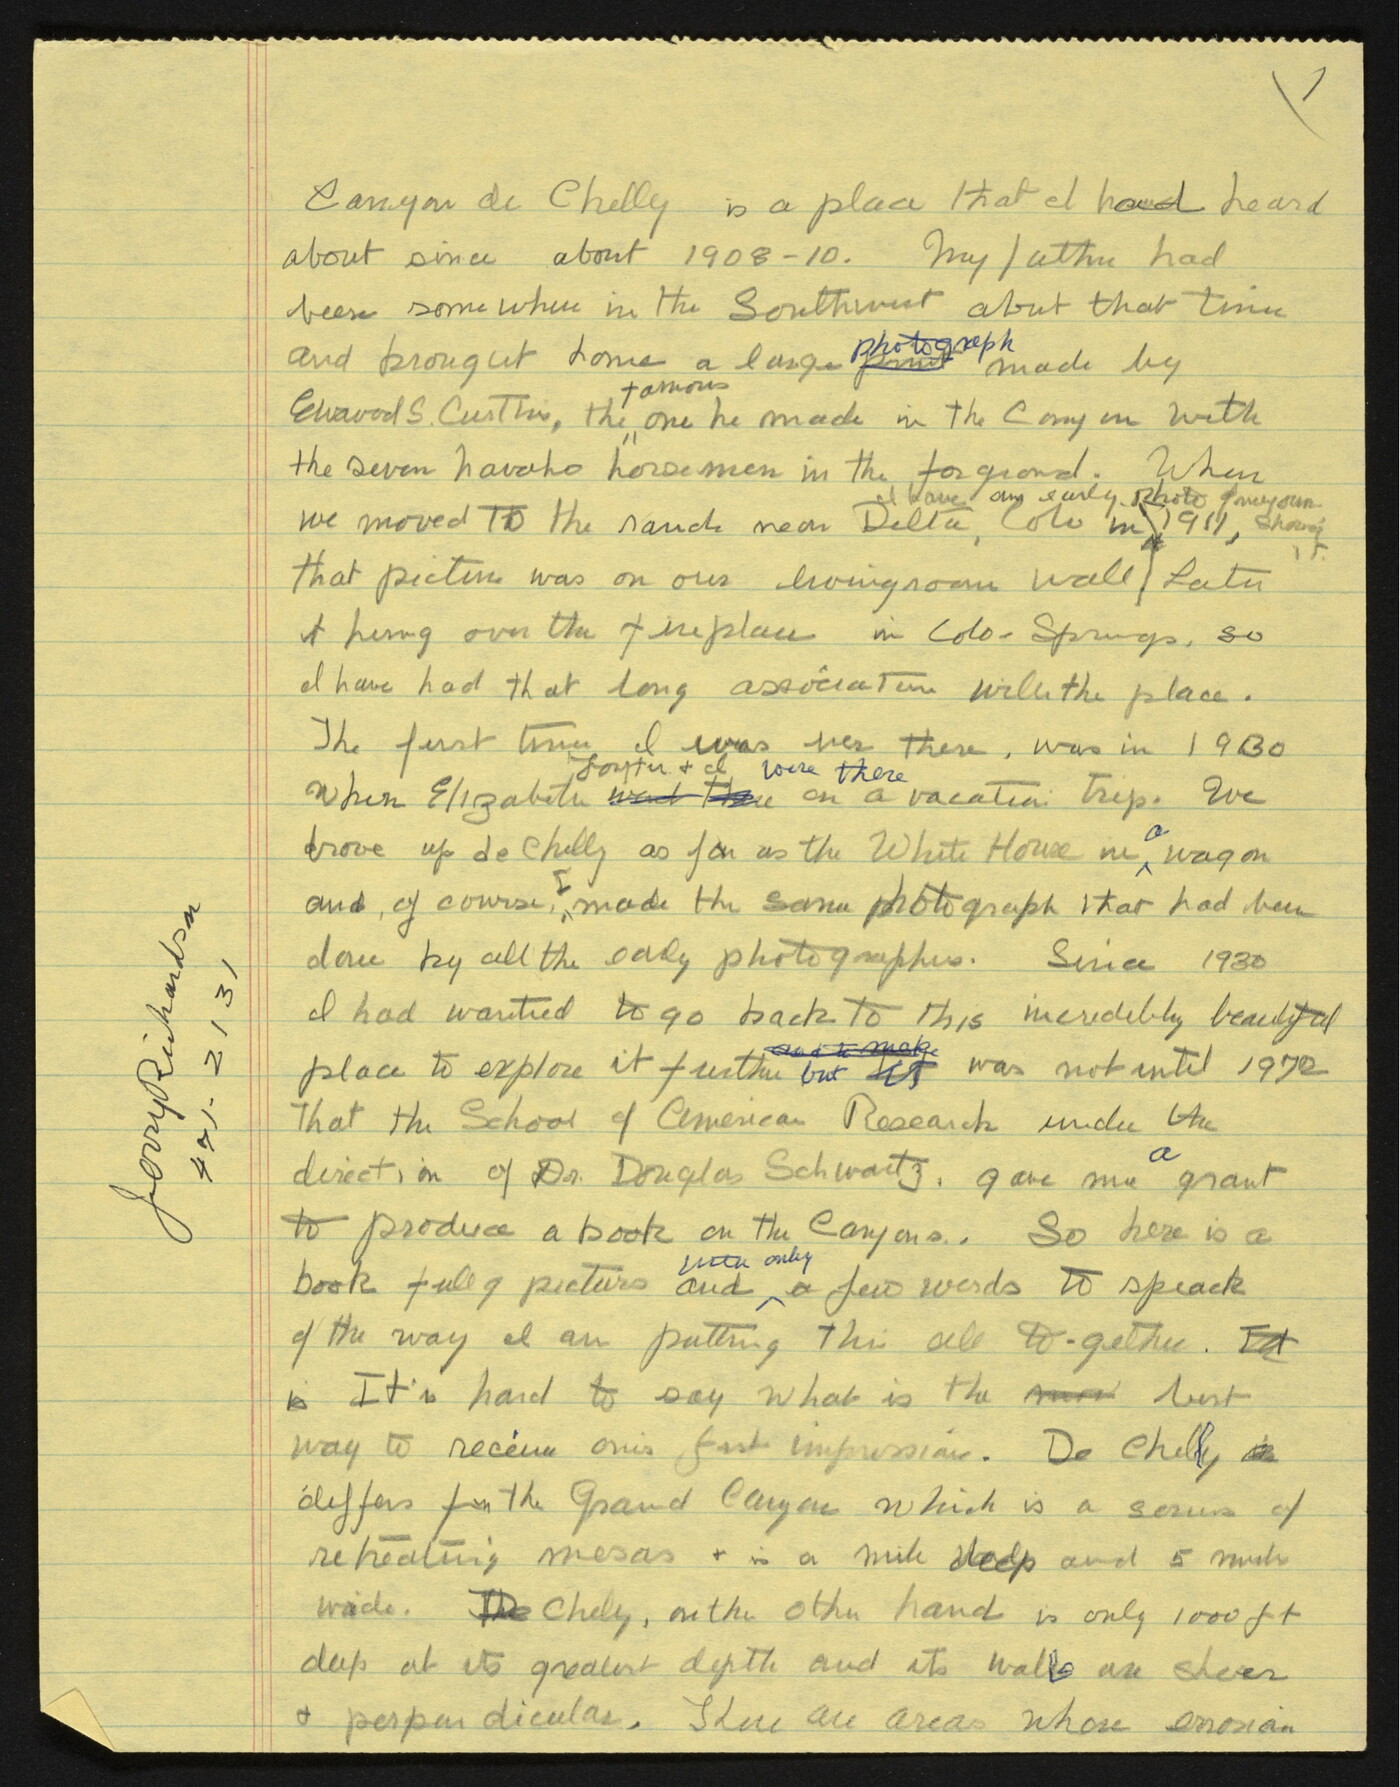 1
Canyon de Chelly is a place that I had heard
about since about 1908-10. My father had
been somewhere in the Southwest about that time
and brought home a large photograph print made by
famous
Edward S. Curtis, the one he made in the Canyon with
the seven navaho horsemen in the forground. When
I have an early photo of my own showing it.
we moved to the ranch near Delta, Colo in 1911,
that picture was on our livingroom wall Later
it hung over the fireplace in Colo. Springs, so
I have had that long association with the place.
The first time I was ver there, was in 1930
Forster + I were there
when Elizabeth went there on a vacation trip. We
drove up de Chelly as far as the White House in a wagon
and, of course, I made the same photograph that had been
done by all the early photographers. Since 1930
I had wanted to go back to this incredibly beautiful
and to make
place to explore it further but it was not until 1972
that the School of American Research under the
direction of Dr. Douglas Schwartz, gave me a grant
to produce a book on the Canyons. So here is a
with only
book full of pictures and a few words to speack
of the way I am putting this all to-gether. It
is It is hard to say what is the best
way to receive ones first impression. De Chelly is
differs from the Grand Canyon which is a series of
retreating mesas + is a mile deep and 5 miles
wide. The Chelly, on the other hand is only 1000 ft
deep at its greatest depth and its walls are sheer
+ perpendicular. There are areas whose errosion
Jerry Richardson
471-2131